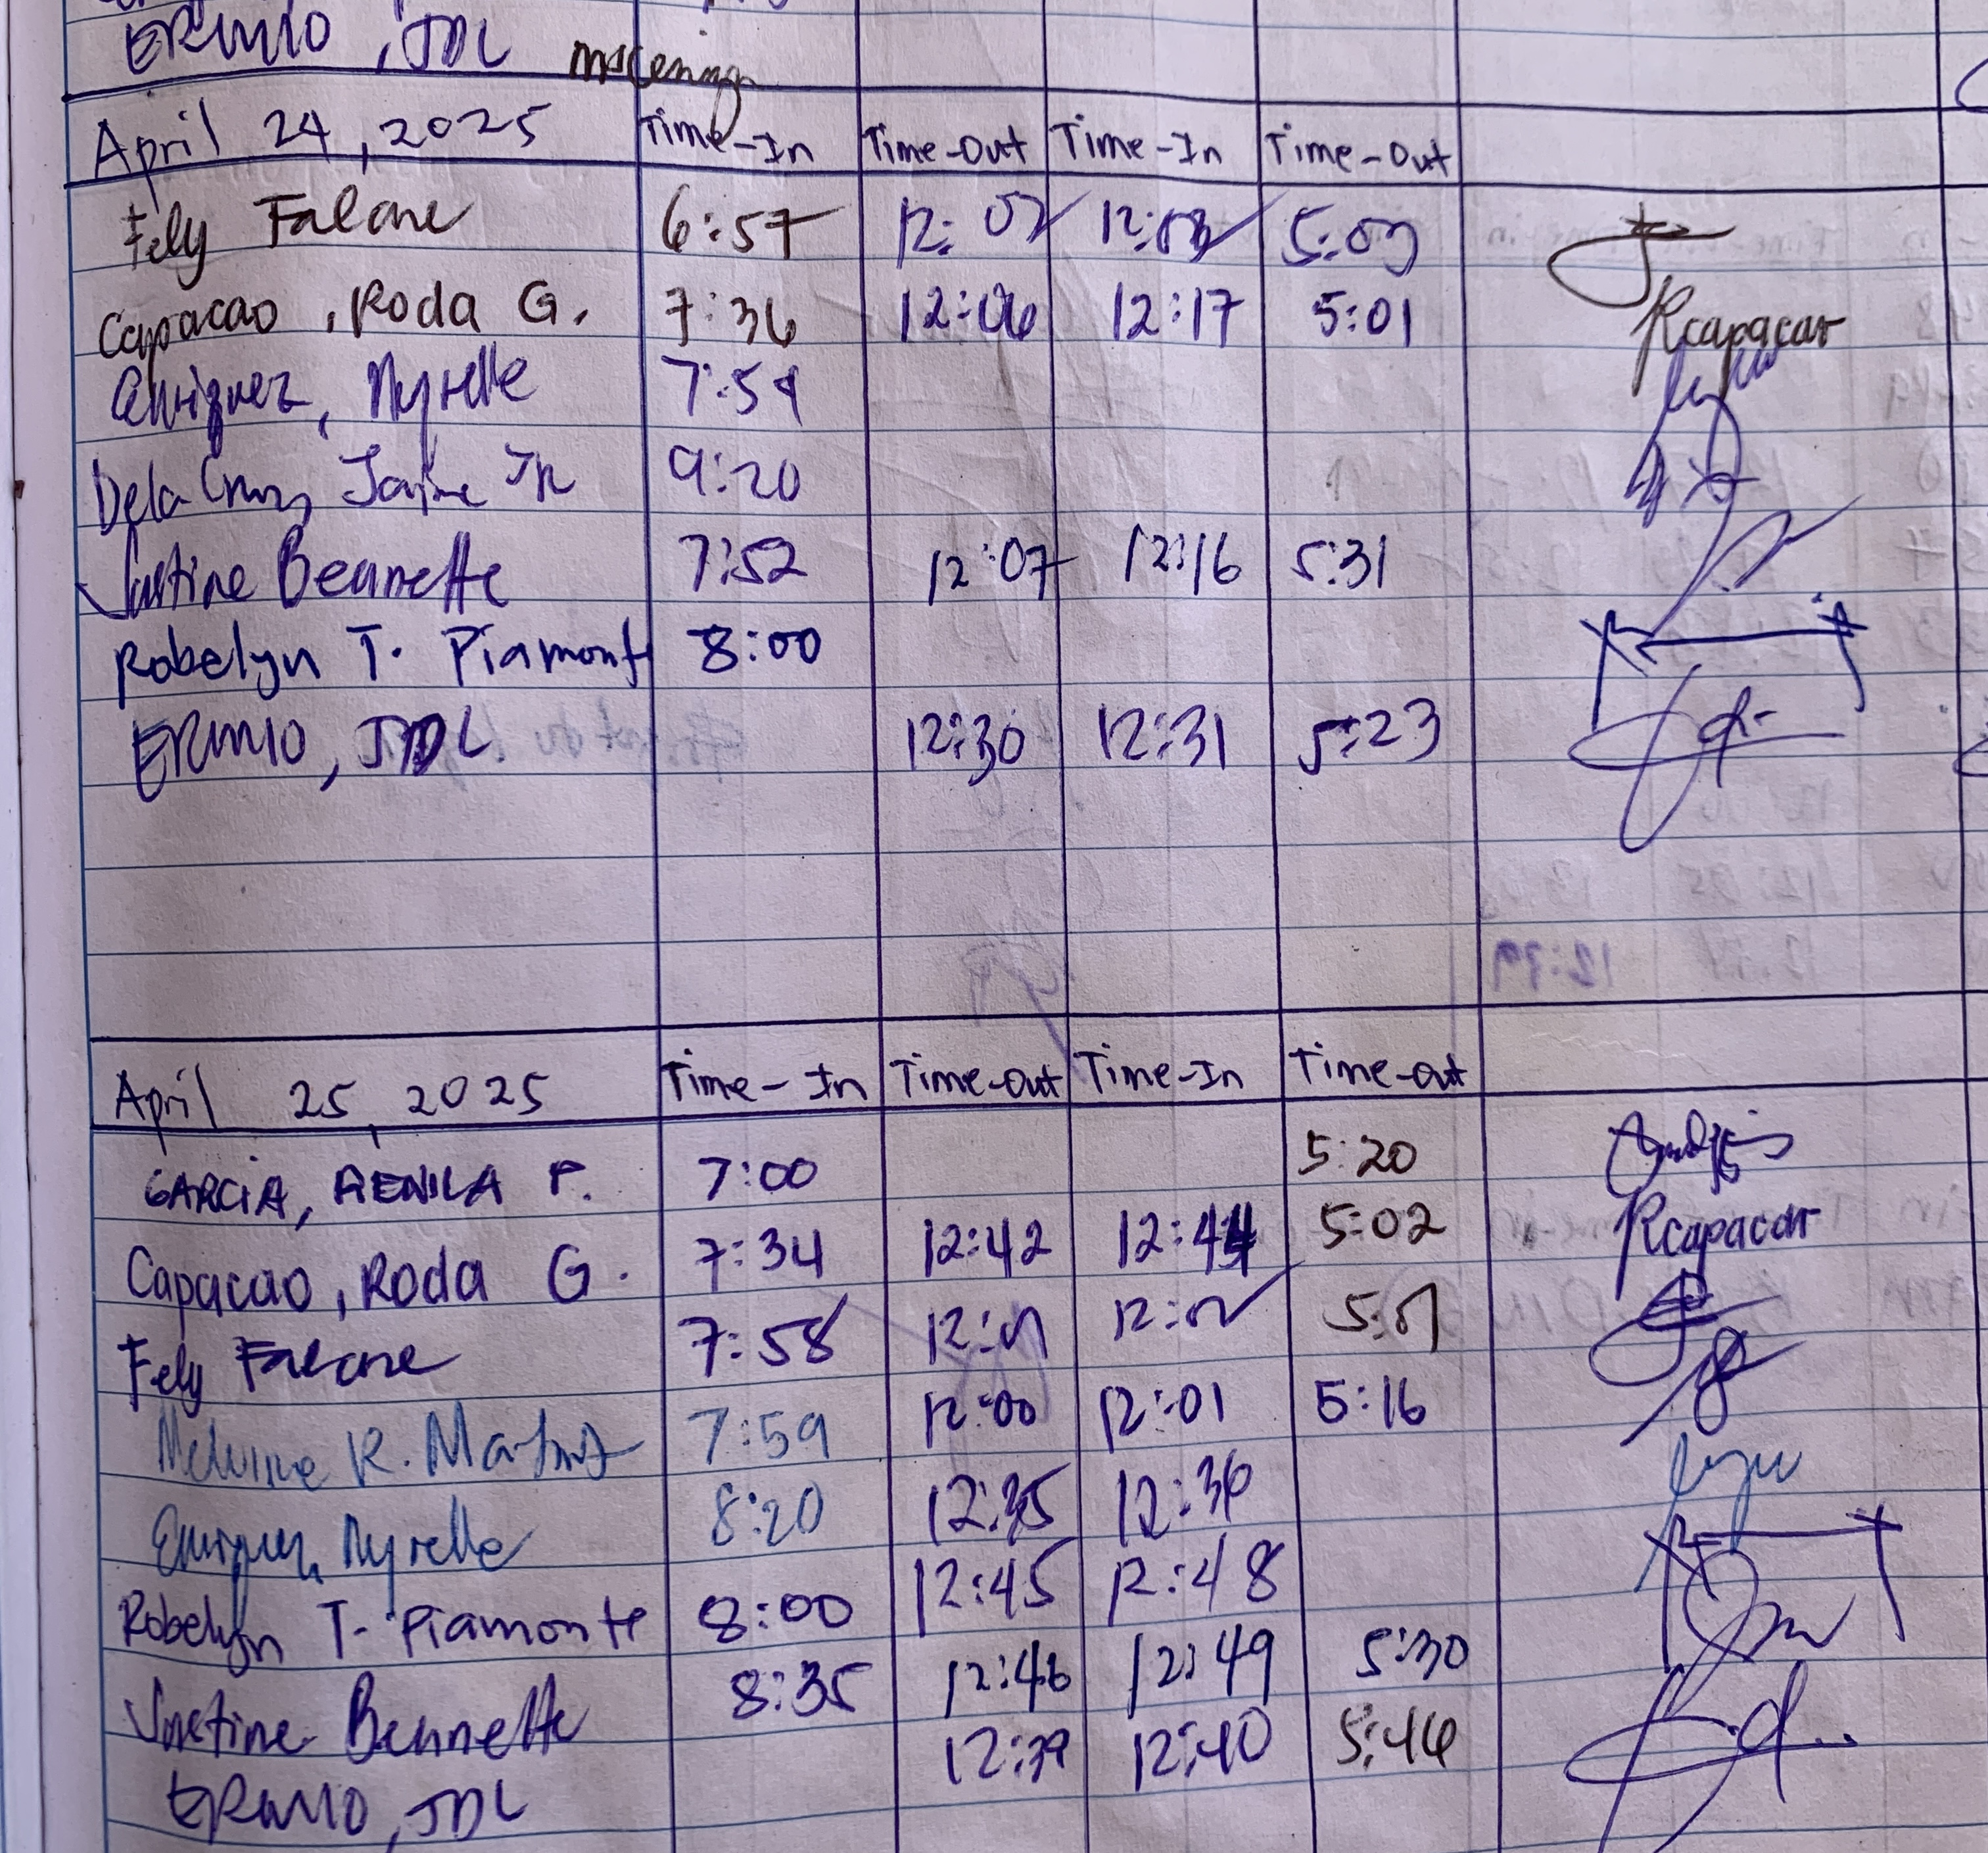 ERMIO, JDL
April 24, 2025 Time-In Time-Out Time-In Time-Out
Fely Falcone 6:57 12:02 12:03 5:03
Capacao, Roda G. 7:36 12:06 12:17 5:01 Rcapacao
Enriquez, Myrelle 7:59
Dela Cruz, Jaime Jr 9:20
Justine Bennette 7:52 12:07 12:16 5:31
Robelyn T. Piamonte 8:00
ERMIO, JDL. 12:30 12:31 5:23
April 25, 2025 Time-In Time-Out Time-In Time-Out
GARCIA, AENILA P. 7:00 5:20
Capacao, Roda G. 7:34 12:42 12:44 5:02 Rcapacao
Fely Falcone 7:58 12:01 12:02 5:01
R. 7:59 12:00 12:01 5:16
Enriquez, Myrelle 8:20 12:35 12:36
Robelyn T. Piamonte 8:00 12:45 12:48
Justine Bennette 8:35 12:46 12:49 5:30
ERMIO, JDL 12:39 12:40 5:46